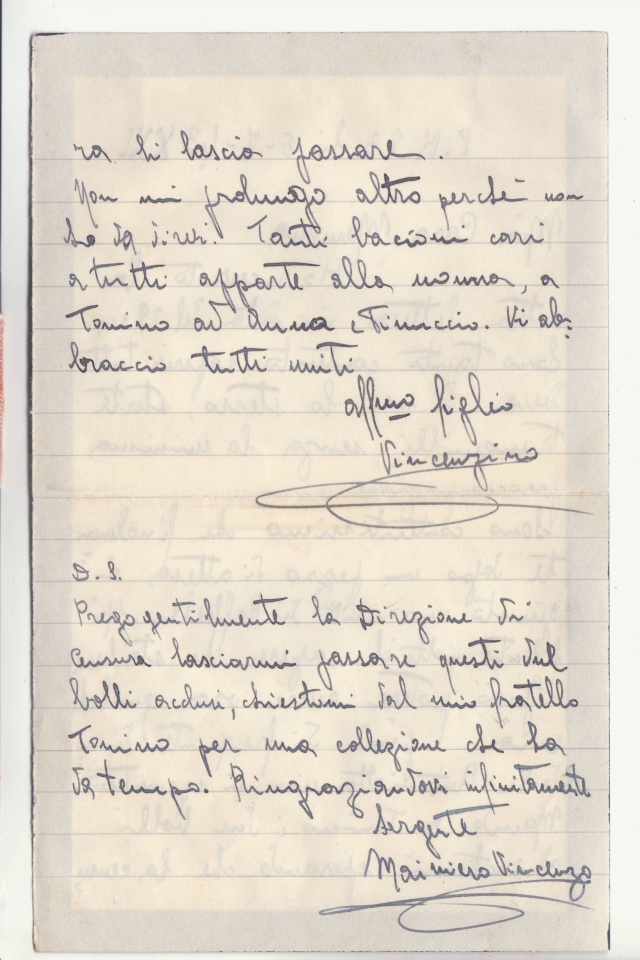 ra li lascia passare.
Non mi prolungo altro perché non
so da dirvi. Tanti bacioni cari
a tutti apparte alla nonna, a
Tonino ad Anna e Tinuccio. Vi ab-
braccio tutti uniti
affmo figlio
Vincenzino
D. S.
Prego gentilmente la Direzione di
Censura lasciarmi passare questi due
bolli acclusi, chiestomi dal mio fratello
Tonino per una collezione che ha
da tempo. Ringraziandovi infinitamente
Sergente
Vincenzo